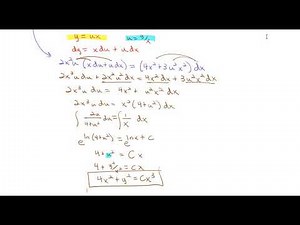 y = ux u = y/x
dy = x du + u dx
2x²u (x du + u dx) = (4x² + 3u²x²) dx
2x³u du + 2x²u²dx = 4x²dx + 3u²x²dx
2x³u du = 4x² + u²x² dx
2x³u du = x²(4+u²) dx
∫ 2u/4+u² du = ∫ 1/x dx
e^ln(4+u²) = e^lnx + C
4+u² = Cx
4 + y²/x² = Cx
4x² + y² = Cx³